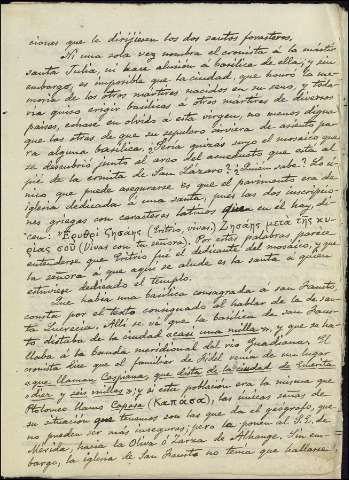 ciones que le dirijiesen los dos santos forasteros,
Ni una sola vez nombra el cronista á la mártir
santa Julia, ni hace alusión á basílica de ella; y sin
embargo, es imposible que la ciudad, que honró la me-
moria de los otros mártires nacidos en su seno, y toda-
vía quiso erigir basílicas á otros mártires de diversos
países, echase en olvido á esta virgen, no menos digna
que las otras de que su sepulcro sirviera de asiento pa-
ra alguna basílica. ¿Sería quizás suyo el mosaico que
se descubrió junto al arco del acueducto que está al
pié de la ermita de San Lázaro? ¿Quién sabe? Lo ú-
nico que puede asegurarse es que el pavimento era de
iglesia dedicada á una santa, pues las dos inscripcio-
nes griegas con caracteres latinos que en él hay, di-
cen: Ἐρυθρί Ζησαης (Eritrio, vivas) Ζησαης μετά της κυ-
ρίας σοῦ (Vivas con tu señora). Por estas palabras parece
entenderse que Eritrio fué el dedicante del mosaico, y que
la señora á que aquí se alude es la santa á quien
estuviese dedicado el templo.
Que había una basílica consagrada á san Fausto
consta por el texto consignado al hablar de la de san-
ta Lucrecia. Allí se vé que la basílica de san Faus-
to, distaba de la ciudad casi una milla, y que se ha-
llaba á la banda meridional del río Guadiana. El
cronista dice que el familiar de Fidel venía de un lugar
«que llaman Caspiana, que dista de la ciudad de Mérita
diez y seis millas»; y si esta población era la misma que
Ptolomeo llama Capasa (Καπάσα), las únicas señas de
su situación que tenemos son las que da el geógrafo, que
no pueden ser más inseguras; pero la ponen al S.E. de
Mérida, hacia la Oliva ó Zarza de Alhange. Sin em-
bargo, la iglesia de san Fausto no tenía que hallarse